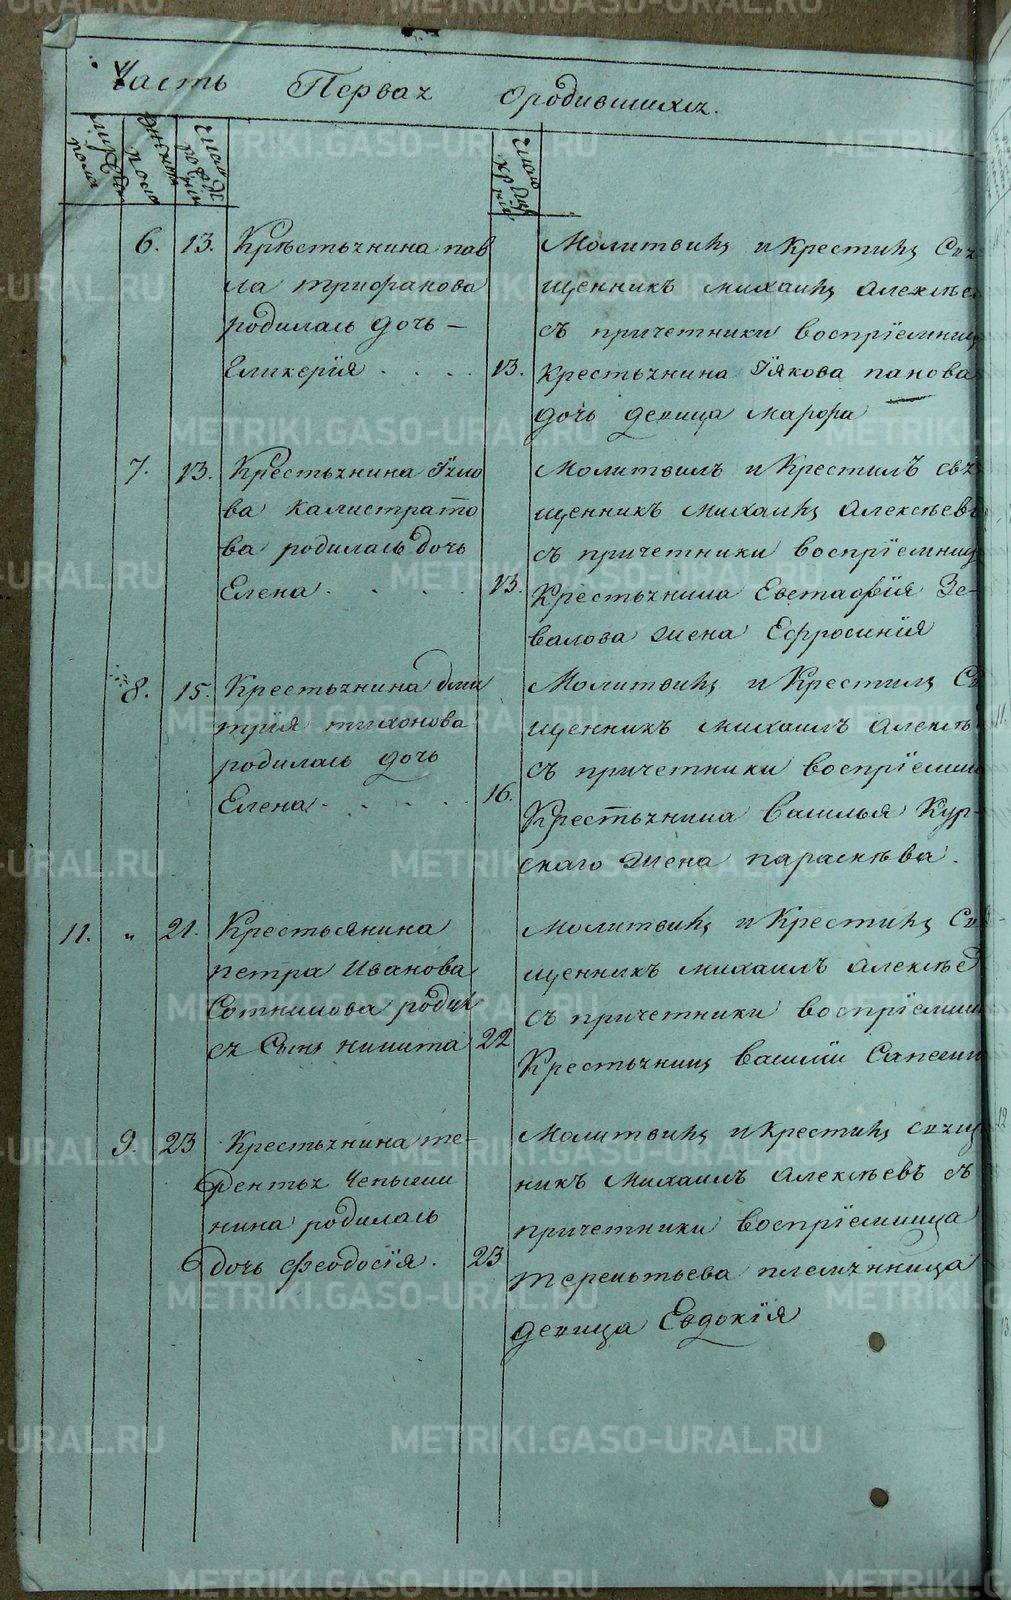 Часть Первая ородившихся.
мужеска пола
женска пола
число рождения
число крещения
6. 13. Крѣстьянина пав
ла трифанова
родилась дочь –
Гликерїя . . . .
13.
Молитвилъ и Крестилъ Свя
щенникъ михаилъ алексѣев
съ причетники воспрїемниц
крестьянина Їякова панова
дочь девица марфа
7. 13. Крестьянина Їяко
ва калистрато
ва родилась дочь
Елена . . . .
13.
Молитвилъ и Крестилъ свя
щенникъ михаилъ алексѣевъ
съ причетники воспрїемниц
Крестьянина Евстафїя Зе-
валова жена Ефросинїя
8. 15. Крестьянина дми
трїя тихонова
родилась дочь
Елена . . . .
16.
Молитвилъ и Крестилъ Св
щенникъ михаилъ алексѣ
съ причетники воспрїемни
Крестьянина василья Кур-
скаго жена параскѣва.
11. " 21. Крестьянина
петра иванова
Сотникова родил
ся сынъ никита
22
Молитвилъ и Крестилъ Свя
щенникъ михаилъ алексѣе
съ причетники воспрїемни
Крестьянинъ василїй
9. 23 Крестьянина те-
рентья
нина родилась
дочь феодосїя.
23
Молитвилъ и крестилъ свящ
никъ михаилъ алексѣевъ съ
причетники воспрїемница
терентьева племянница
девица Евдокїя
METRIKI.GASO-URAL.RU